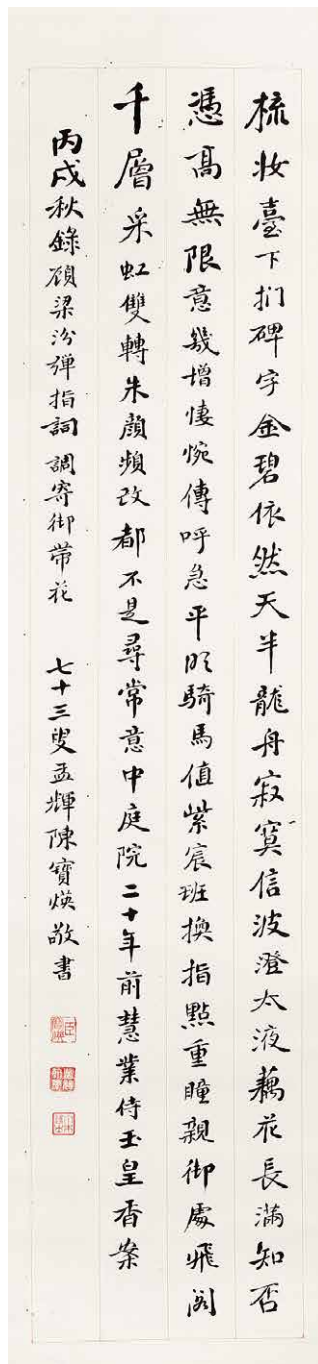 梳妝臺下捫碑字金碧依然天半龍舟寂寞信波澄太液藕花長滿知否
憑高無限意幾增悽惋傳呼急平明騎馬值紫宸班換指點重瞳親御處飛閣
千層采虹雙轉朱顏頻改都不是尋常意中庭院二十年前慧業侍玉皇香案
丙戌秋錄顧梁汾彈指詞調寄御帶花 七十三叟孟輝陳寶煐敬書